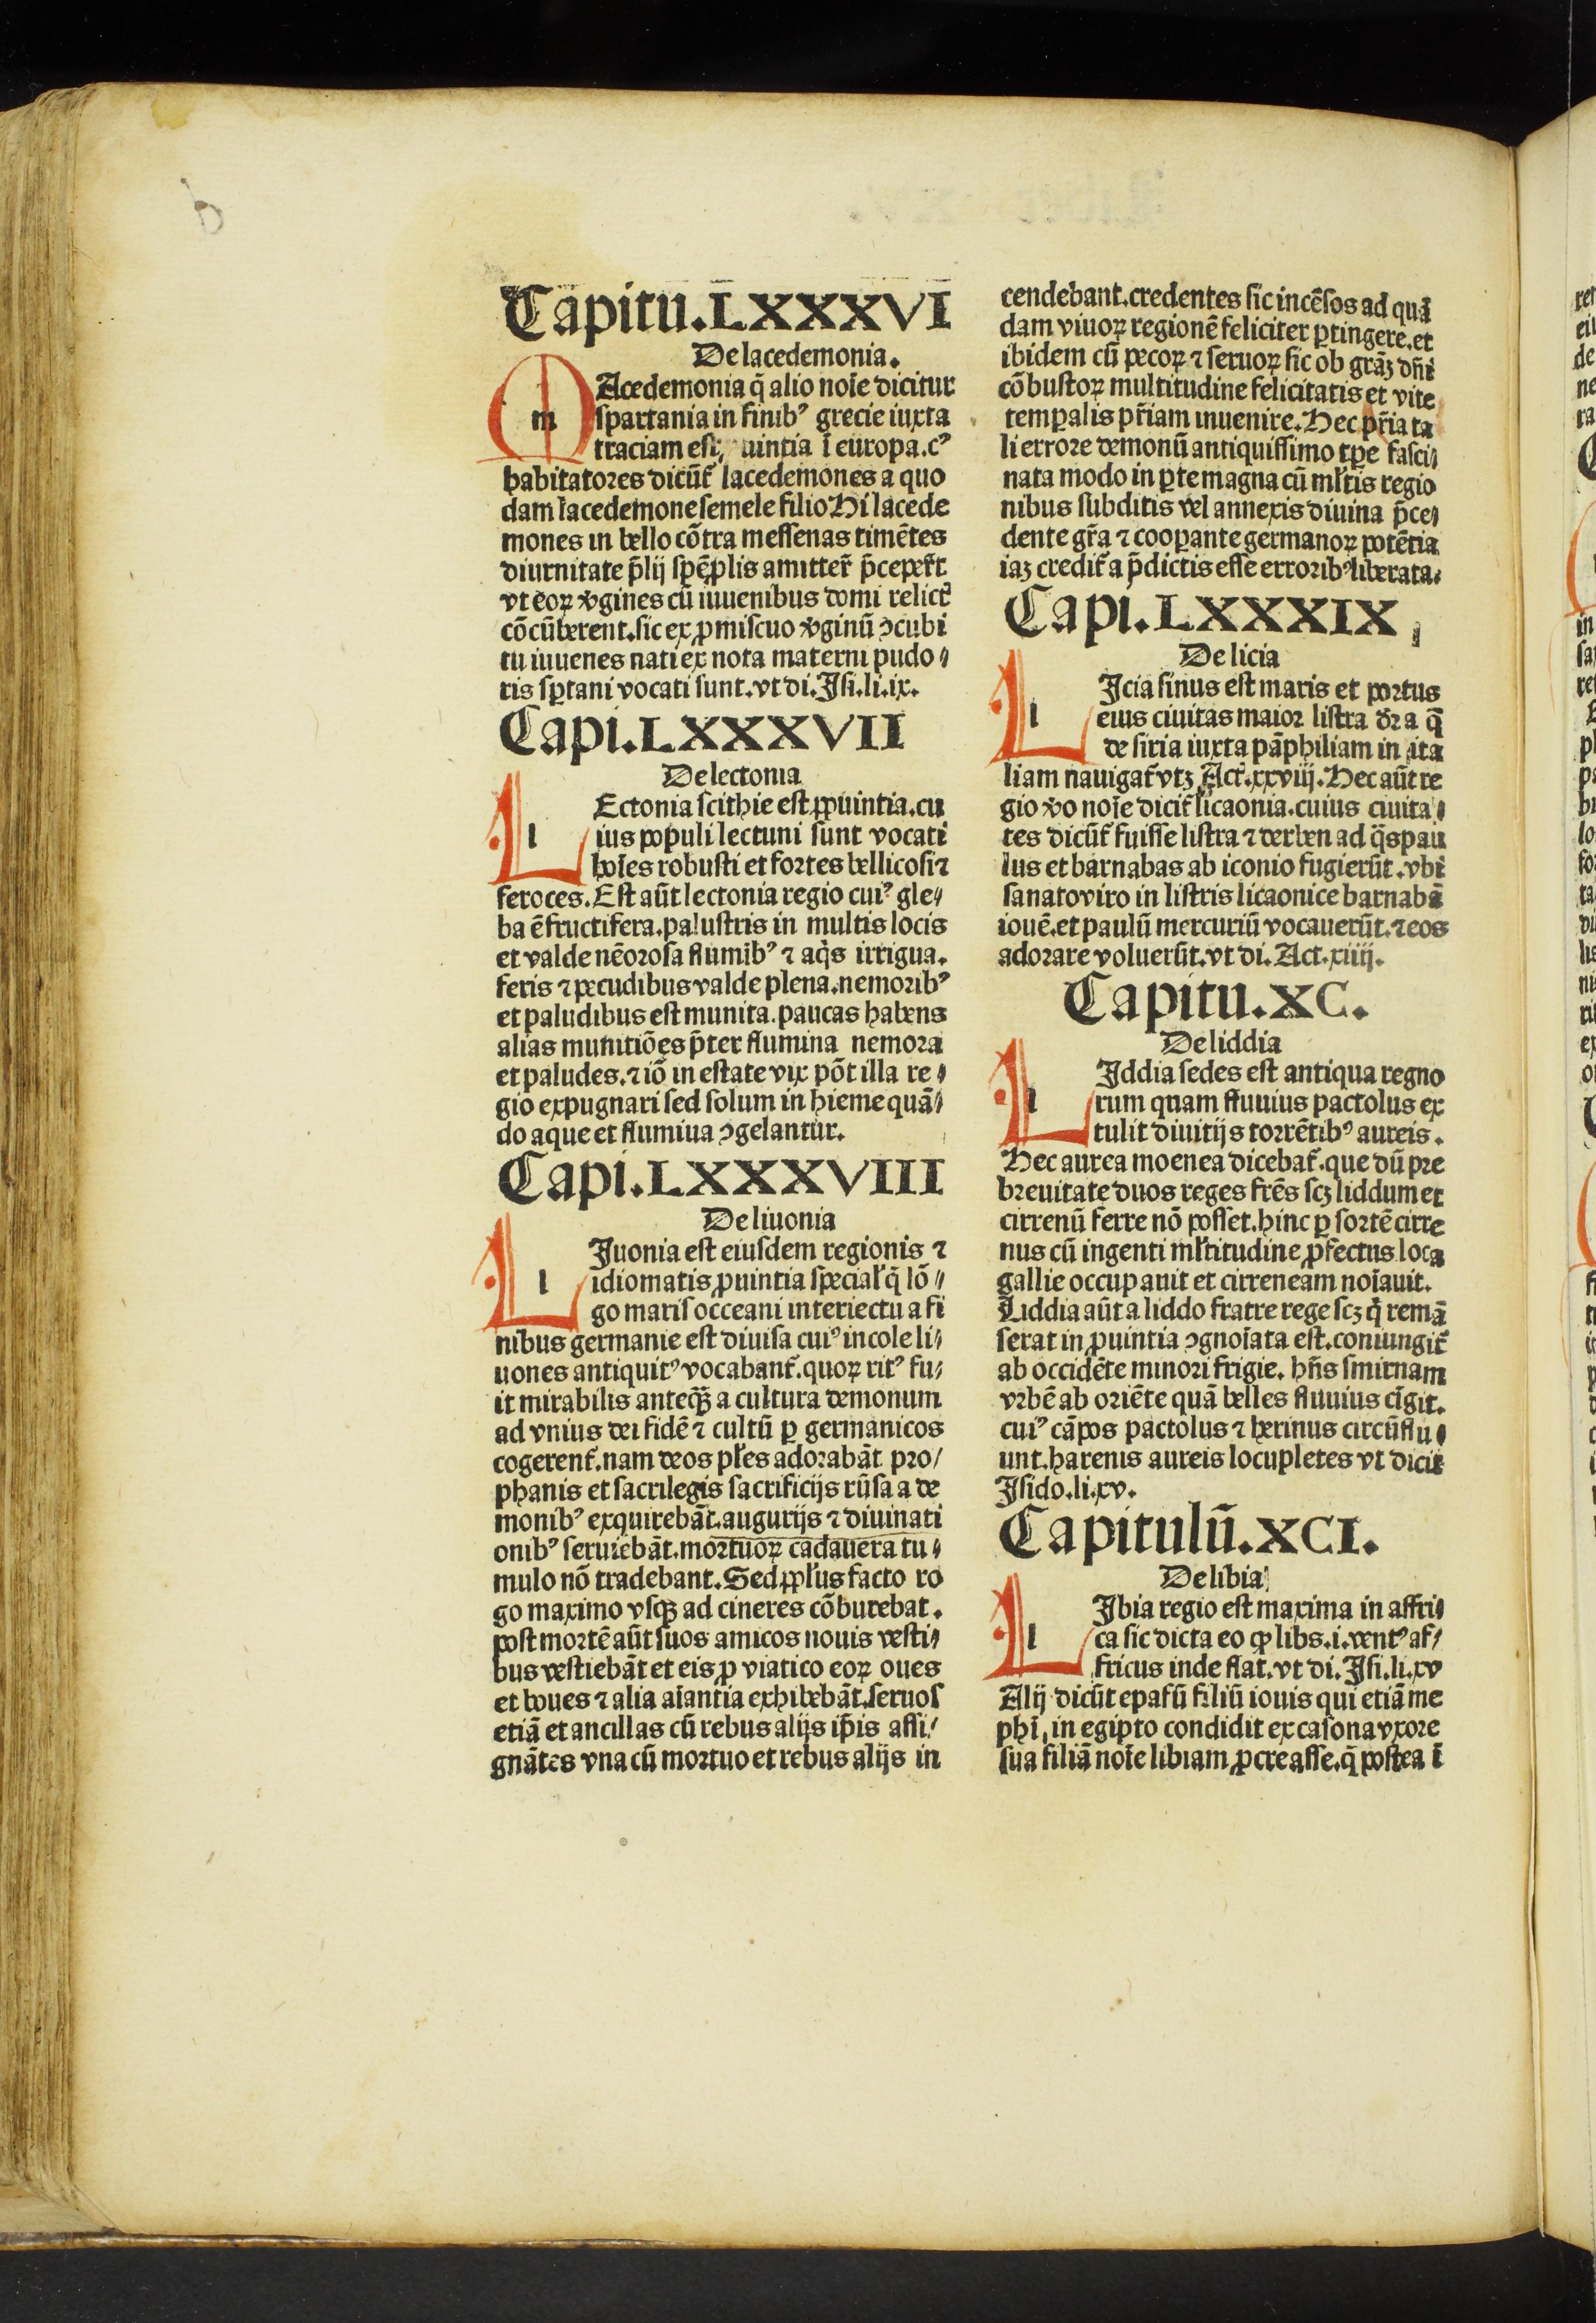 Capitu.LXXXVI
De lacedemonia.
m Acedemonia q̄ alio noīe dicitur
spartania in finibꝰ grecie iuxta
traciam est uintia ī europa.cꝰ
habitatores dicūt̄ lacedemones a quo
dam lacedemone semele filio Hi lacede
mones in bello cōtra messenas timētes
diurnitate p̄lij spē ꝓlis amitter̄ p̄ceper̄t
vt eoꝝ v̓gines cū iuuenibus domi relict̄
cōcūberent.sic ex ꝓmiscuo v̓ginū ꝯcubi
tu iuuenes nati ex nota materni pudo⸗
ris sꝑtani vocati sunt.vt di.Isi.li.ix.
Capi.LXXXVII
De lectonia
l Ectonia scithie est ꝓuintia.cu
ius populi lectuni sunt vocati
hoīes robusti et fortes bellicosi ⁊
feroces.Est aūt lectonia regio cuiꝰ gle⸗
ba ē fructifera.palustris in multis locis
et valde nēorosa flumībꝰ ⁊ aq̄s irrigua.
feris ⁊ pecudibus valde plena.nemoribꝰ
et paludibus est munita.paucas habens
alias munitiōes p̄ter flumina nemora
et paludes.⁊ iō in estate vix pōt illa re⸗
gio expugnari sed solum in hieme quā⸗
do aque et flumiua ꝯgelantur.
Capi.LXXXVIII
De liuonia
l Iuonia est eiusdem regionis ⁊
idiomatis ꝓuintia special̓ q̄ lō⸗
go maris occeani interiectu a fi
nibus germanie est diuisa cuiꝰ incole li⸗
uones antiquitꝰ vocabant̄.quoꝝ ritꝰ fu⸗
it mirabilis anteqꝫ a cultura demonum
ad vnius dei fidē ⁊ cultū ꝑ germanicos
cogerent̄.nam deos pl̓es adorabāt pro/
phanis et sacrilegis sacrificijs rn̄sa a de
monibꝰ exquirebāt.augurijs ⁊ diuinati
onibꝰ seruiebāt.mortuoꝝ cadauera tu⸗
mulo nō tradebant.Sed ppl̓us facto ro
go maximo vsqꝫ ad cineres cōburebat.
post mortē aūt suos amicos nouis vesti⸗
bus vestiebāt et eis ꝓ viatico eoꝝ oues
et boues ⁊ alia aīantia exhibebāt.seruos
etiā et ancillas cū rebus alijs ip̄is assi/
gnātes vna cū mortuo et rebus alijs in
cendebant.credentes sic incēsos ad quā
dam viuoꝝ regionē feliciter ꝑtingere.et
ibidem cū pecoꝝ ⁊ seruoꝝ sic ob grāꝫ dn̄i
cōbustoꝝ multitudine felicitatis et vite
temꝑalis pr̄iam inuenire.Hec pr̄ia ta
li errore demonū antiquissimo tꝑe fasci⸗
nata modo in ꝑte magna cū ml̓tis regio
nibus subditis vel annexis diuina p̄ce⸗
dente gr̄a ⁊ cooꝑante germanoꝝ potētia
iaꝫ credit̄ a p̄dictis esse erroribꝰ liberata.
Capi.LXXXIX
De licia
l Icia sinus est maris et portus
eius ciuitas maior listra dr̄ a q̄
de siria iuxta pāphiliam in ita
liam nauigat̄ vtꝫ Act̄.xxviij.Hec aūt re
gio v̓o noīe dicit̄ licaonia.cuius ciuita⸗
tes dicūt̄ fuisse listra ⁊ derben ad q̄s pau
lus et barnabas ab iconio fugierūt.vbi
sanato viro in listris licaonice barnabā
iouē.et paulū mercuriū vocauerūt.⁊ eos
adorare voluerūt.vt di.Act.xiiij.
Capitu.XC.
De liddia
l Iddia sedes est antiqua regno
rum quam fluuius pactolus ex
tulit diuitijs torrētibꝰ aureis.
Hec aurea moenea dicebat̄.que dū pre
breuitate duos reges fr̄es scꝫ liddum et
cirrenū ferre nō posset.hinc ꝑ sortē cirre
nus cū ingenti ml̓titudine ꝓfectus loca
gallie occupauit et cirreneam noīauit.
Liddia aūt a liddo fratre rege scꝫ q̄ remā
serat in ꝓuintia ꝯgnoīata est.coniungit̄
ab occidēte minori frigie. hn̄s smirnam
vrbē ab oriēte quā belles fluuius cīgit.
cuiꝰ cāpos pactolus ⁊ herinus circūflu⸗
unt.harenis aureis locupletes vt dicit
Isido.li.xv.
Capitulū.XCI.
De libia
l Ibia regio est maxima in affri⸗
ca sic dicta eo ꝙ libs.i.ventꝰ af/
fricus inde flat.vt di.Isi.li.xv
Alij dicūt epafū filiū iouis qui etiā me
phī, in egipto condidit ex casona vxore
sua filiā noīe libiam ꝓcreasse.q̄ postea ī